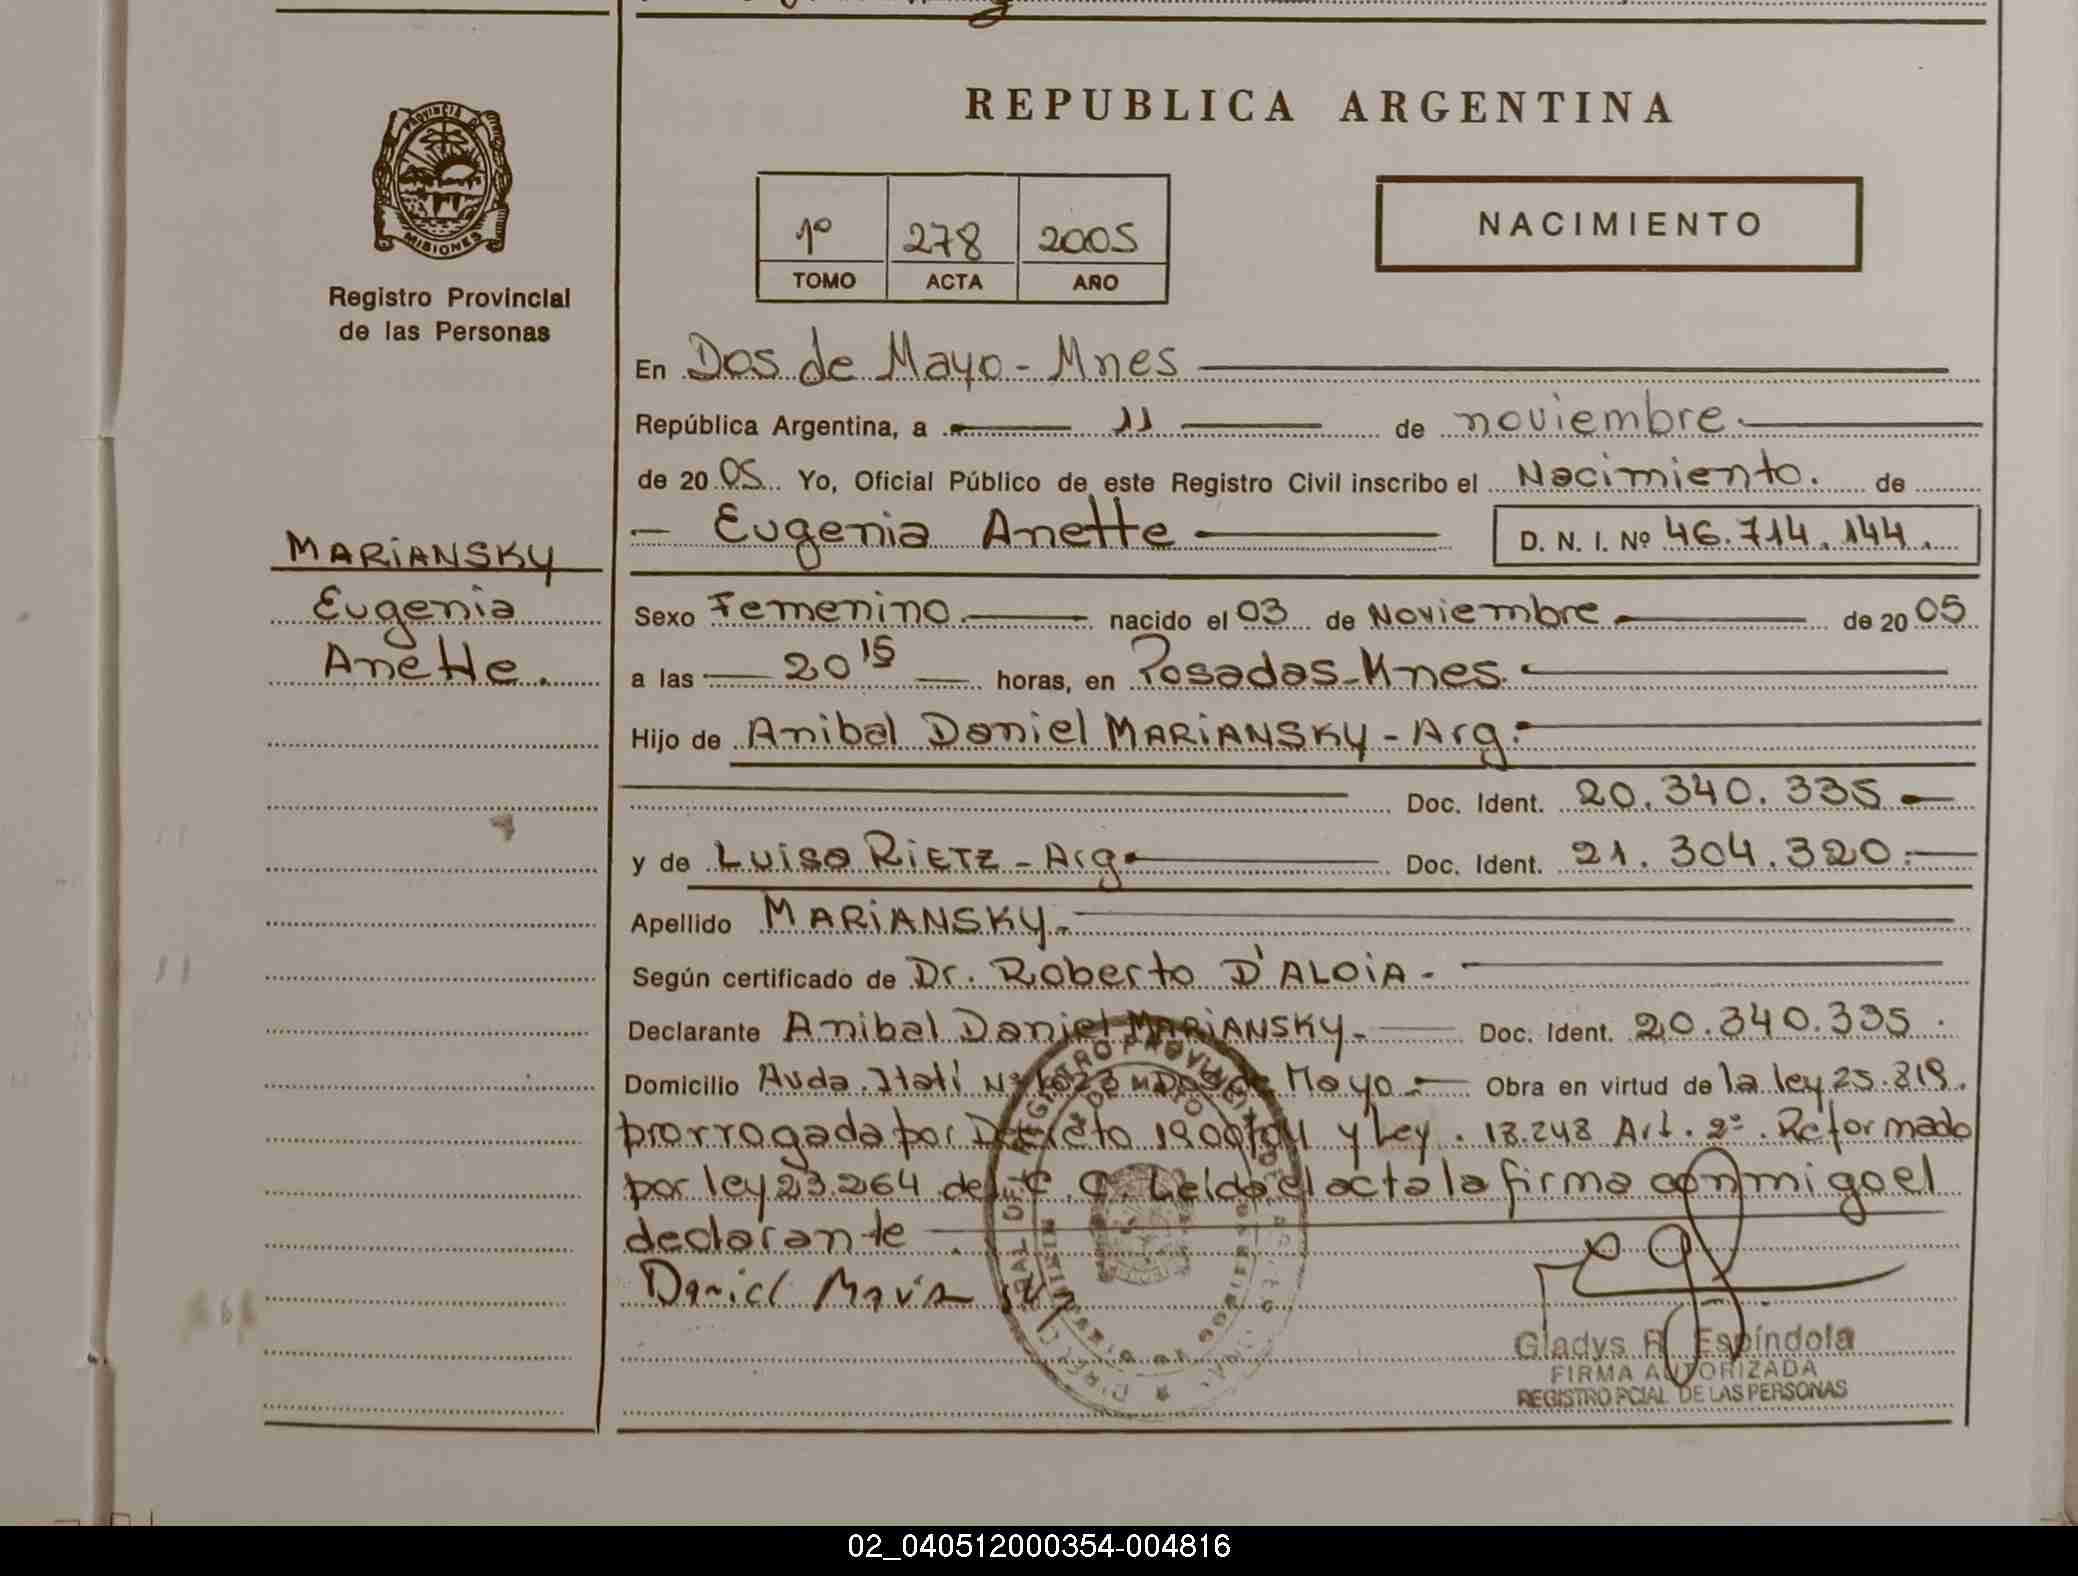 REPUBLICA ARGENTINA
PROVINCIA DE
MISIONES
Registro Provincial
de las Personas
1º 278 2005
TOMO ACTA AÑO
NACIMIENTO
En Dos de Mayo - Mnes
República Argentina, a 11 de noviembre.
de 2005 Yo, Oficial Público de este Registro Civil inscribo el Nacimiento. de
Eugenia Anette D. N. I. Nº 46.714.144.
MARIANSKY
Eugenia
Anette.
Sexo Femenino. nacido el 03 de Noviembre de 2005
a las 20 15 horas, en Posadas-Mnes.
Hijo de Anibal Daniel MARIANSKY - Arg.
Doc. Ident. 20.340.335
y de Luisa RIETZ - Arg Doc. Ident. 21.304.320.
Apellido MARIANSKY.
Según certificado de Dr. Roberto D'ALOIA -
Declarante Anibal Daniel MARIANSKY - Doc. Ident. 20.340.335.
Domicilio Avda. Itatí Nº 1023 Dos de Mayo. Obra en virtud de la ley 25.819.
prorrogada por Decreto y Ley. 18.248 Art. 2º. Reformado
por ley 23.264 del C. C. Leída el acta la firma conmigo el
declarante.
Daniel Mariansky
Gladys R. Espíndola
FIRMA AUTORIZADA
REGISTRO PCIAL. DE LAS PERSONAS
02_040512000354-004816